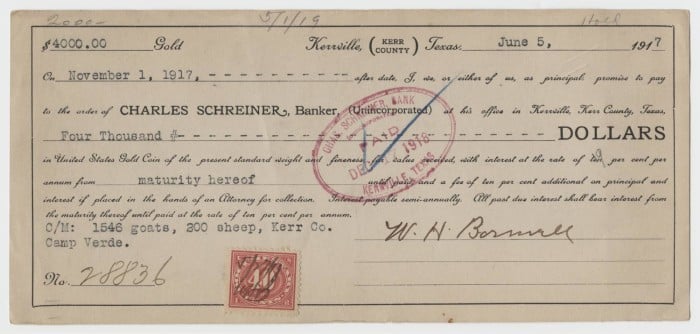 2000- 5/1/19 Hold
$4000.00 Gold Kerrville, (KERR COUNTY) Texas, June 5, 1917
On November 1, 1917, - - - - - - - - - - - after date, I, we, or either of us, as principal, promise to pay
to the order of CHARLES SCHREINER, Banker, (Unincorporated) at his office in Kerrville, Kerr County, Texas,
Four Thousand #- - - - - - - - - - - - - - - - - - - - - - - - - - - - - DOLLARS
in United States Gold Coin of the present standard weight and fineness for value received, with interest at the rate of ten per cent per
annum from maturity hereof until paid and a fee of ten per cent additional on principal and
interest if placed in the hands of an Attorney for collection. Interest payable semi-annually. All past due interest shall bear interest from
the maturity thereof until paid at the rate of ten per cent per annum.
C/M: 1546 goats, 200 sheep, Kerr Co.
Camp Verde.
W. H. Bonnell
No. 28836
CHAS. SCHREINER, BANK
PAID
DEC 1918
KERRVILLE TEXAS